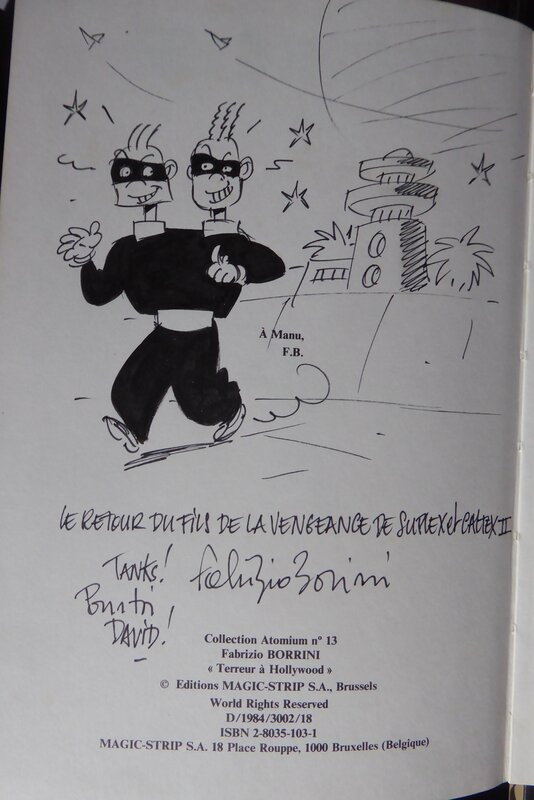 À Manu,
F.B.
LE RETOUR DU FILS DE LA VENGEANCE DE SUPLEX et GALTEX II
TANKS!
Fabrizio Borrini
DAVID!
Collection Atomium nº 13
Fabrizio BORRINI
« Terreur à Hollywood »
© Editions MAGIC-STRIP S.A., Brussels
World Rights Reserved
D/1984/3002/18
ISBN 2-8035-103-1
MAGIC-STRIP S.A. 18 Place Rouppe, 1000 Bruxelles (Belgique)